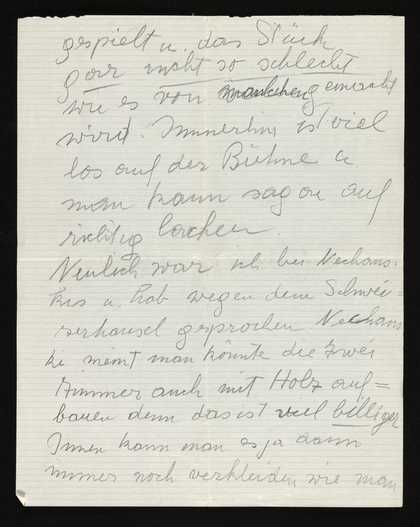 gespielt u. das Stück
gar nicht so schlecht
wie es von manchen gemacht
wird. Immerhin ist viel
los auf der Bühne u.
man kann sogar auf
richtig lachen.
Neulich war ich bei Nechans-
kis u. hab wegen dem Schwei-
zerhäusel gesprochen Nechans
ki meint man könnte die zwei
Zimmer auch mit Holz auf=
bauen denn das ist viel billiger
Innen kann man es ja dann
immer noch verkleiden wie man